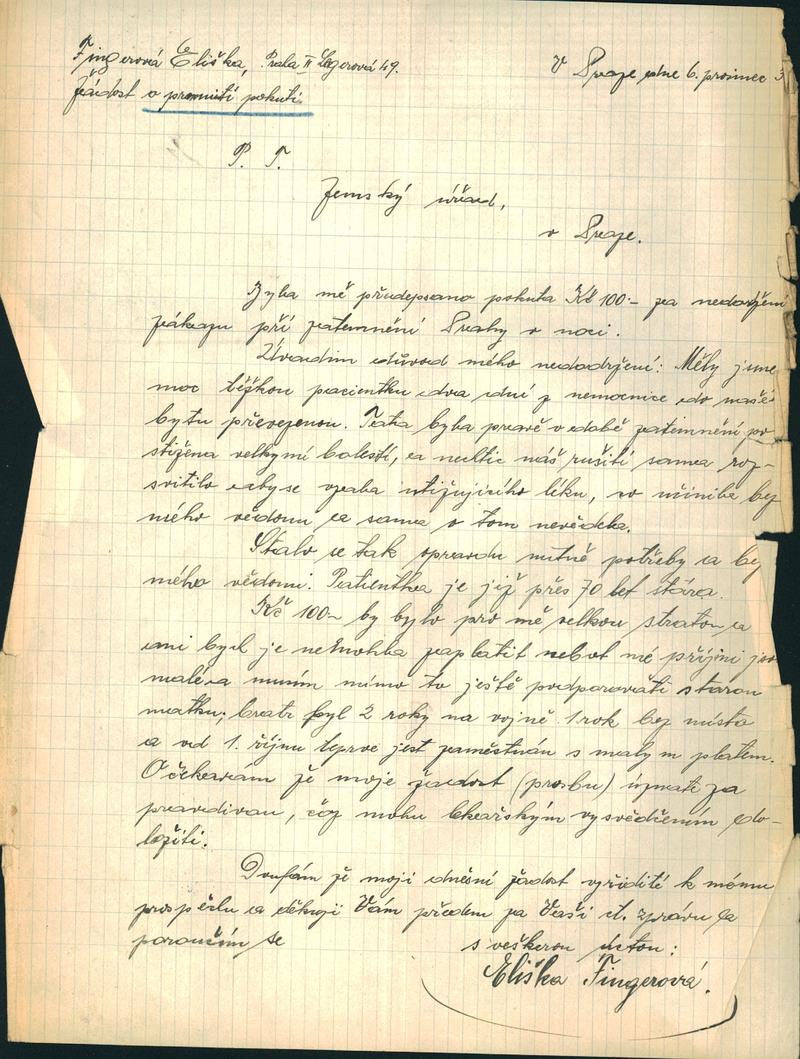 Fingerová Eliška, Praha II Légerová 49.
V Praze dne 6. prosinec 3
Žádost o prominutí pokuti.
P. T.
Zemský úřad,
v Praze.
Byla mě předepsano pokuta Kč 100- za nedodržení
zákazu při zatemnění Prahy v noci.
Uvadím důvod mého nedodržení: Měly jsme
moc těžkou pacientku dva dní z nemocnice do naše
bytu převezenou. Tato byla pravě v době zatemnění po
stižena velkymi bolestí, a nechtic náš rušiti sama roz-
svitila aby se vzala utišujicího léku, co učinila bez
mého vědomí a sama o tom nevěděla.
Stalo se tak opravdu nutné potřeby a bez
mého vědomí. Patientka je již přes 70 let stára.
Kč 100- by bylo pro mě velkou stratou a
ani bych je nemohla zaplatit nebot mé příjmi jso
malé a musím mimo to ještě podporovāti starou
matku; bratr byl 2 roky na vojně 1 rok bez místa
a od 1. říjnu teprve jest zaměstnán s malym platem.
Očekavám že moje žadost (prosbu) úznati za
pravdivou, což mohu lékařským vysvědčením do-
ložiti.
Doufám že moji dnešní žadost vyřiditě k mému
prospěchu a děkuji Vám předem za Vaši ct. zprávu a
poroučím se
s veškerou úctou:
Eliška Fingerová.